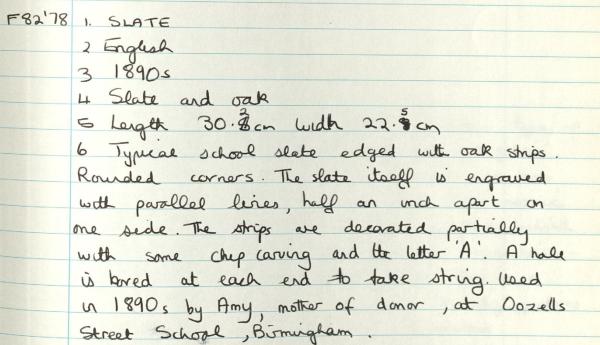 F82'78 1. SLATE
2 English
3 1890s
4 Slate and oak
5 Length 30.2cm width 22.5cm
6 Typical school slate edged with oak strips.
Rounded corners. The slate itself is engraved
with parallel lines, half an inch apart on
one side. The strips are decorated partially
with some chip carving and the letter 'A'. A hole
is bored at each end to take string. Used
in 1890s by Amy, mother of donor, at Oozells
Street School, Birmingham.